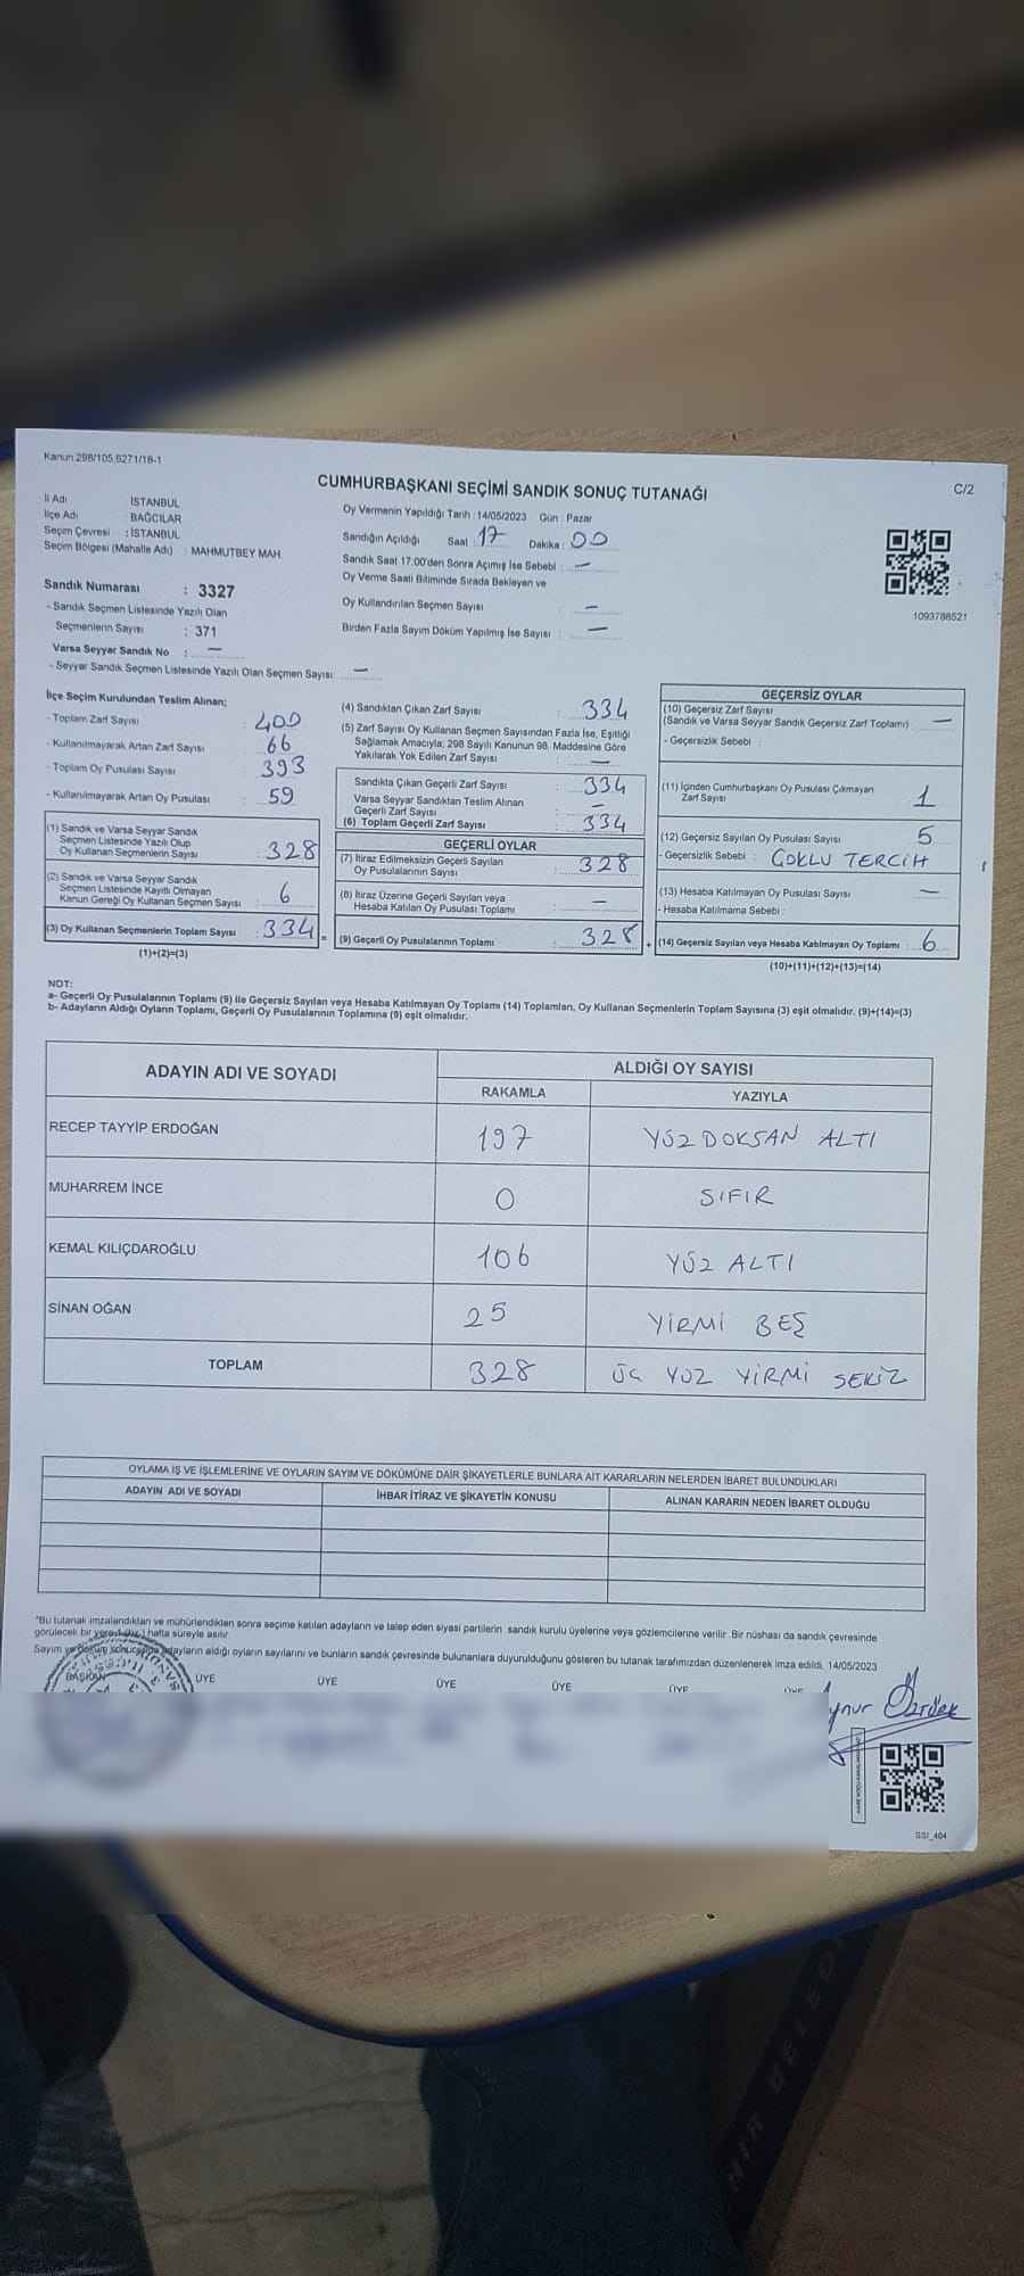 Kanun 298/105,6271/18-1
CUMHURBAŞKANI SEÇİMİ SANDIK SONUÇ TUTANAĞI
C/2
İli Adı İSTANBUL
İlçe Adı BAĞCILAR
Seçim Çevresi : İSTANBUL
Seçim Bölgesi (Mahalle Adı) : MAHMUTBEY MAH.
Sandık Numarası : 3327
- Sandık Seçmen Listesinde Yazılı Olan
Seçmenlerin Sayısı : 371
Varsa Seyyar Sandık No : —
- Seyyar Sandık Seçmen Listesinde Yazılı Olan Seçmen Sayısı : —
Oy Vermenin Yapıldığı Tarih : 14/05/2023 Gün : Pazar
Sandığın Açıldığı Saat : 17 Dakika : 00
Sandık Saat 17.00'den Sonra Açılmış İse Sebebi : —
Oy Verme Saati Bitiminde Sırada Bekleyen ve
Oy Kullandırılan Seçmen Sayısı : —
Birden Fazla Sayım Döküm Yapılmış İse Sayısı : —
1093788521
İlçe Seçim Kurulundan Teslim Alınan;
- Toplam Zarf Sayısı : 400
- Kullanılmayarak Artan Zarf Sayısı : 66
- Toplam Oy Pusulası Sayısı : 393
- Kullanılmayarak Artan Oy Pusulası : 59
(1) Sandık ve Varsa Seyyar Sandık
Seçmen Listesinde Yazılı Olup
Oy Kullanan Seçmenlerin Sayısı : 328
(2) Sandık ve Varsa Seyyar Sandık
Seçmen Listesinde Kayıtlı Olmayan
Kanun Gereği Oy Kullanan Seçmen Sayısı : 6
(3) Oy Kullanan Seçmenlerin Toplam Sayısı : 334 =
(1)+(2)=(3)
(4) Sandıktan Çıkan Zarf Sayısı : 334
(5) Zarf Sayısı Oy Kullanan Seçmen Sayısından Fazla İse, Eşitliği
Sağlamak Amacıyla, 298 Sayılı Kanunun 98. Maddesine Göre
Yakılarak Yok Edilen Zarf Sayısı : —
Sandıkta Çıkan Geçerli Zarf Sayısı : 334
Varsa Seyyar Sandıktan Teslim Alınan
Geçerli Zarf Sayısı : —
(6) Toplam Geçerli Zarf Sayısı : 334
GEÇERLİ OYLAR
(7) İtiraz Edilmeksizin Geçerli Sayılan
Oy Pusulalarının Sayısı : 328
(8) İtiraz Üzerine Geçerli Sayılan veya
Hesaba Katılan Oy Pusulası Toplamı : —
(9) Geçerli Oy Pusulalarının Toplamı : 328 +
GEÇERSİZ OYLAR
(10) Geçersiz Zarf Sayısı
(Sandık ve Varsa Seyyar Sandık Geçersiz Zarf Toplamı) : —
- Geçersizlik Sebebi :
(11) İçinden Cumhurbaşkanı Oy Pusulası Çıkmayan
Zarf Sayısı : 1
(12) Geçersiz Sayılan Oy Pusulası Sayısı : 5
- Geçersizlik Sebebi : ÇOKLU TERCİH
(13) Hesaba Katılmayan Oy Pusulası Sayısı : —
- Hesaba Katılmama Sebebi :
(14) Geçersiz Sayılan veya Hesaba Katılmayan Oy Toplamı : 6
(10)+(11)+(12)+(13)=(14)
NOT:
a- Geçerli Oy Pusulalarının Toplamı (9) ile Geçersiz Sayılan veya Hesaba Katılmayan Oy Toplamı (14) Toplamları, Oy Kullanan Seçmenlerin Toplam Sayısına (3) eşit olmalıdır. (9)+(14)=(3)
b- Adayların Aldığı Oyların Toplamı, Geçerli Oy Pusulalarının Toplamına (9) eşit olmalıdır.
ADAYIN ADI VE SOYADI ALDIĞI OY SAYISI
RAKAMLA YAZIYLA
RECEP TAYYİP ERDOĞAN 197 YÜZ DOKSAN ALTI
MUHARREM İNCE 0 SIFIR
KEMAL KILIÇDAROĞLU 106 YÜZ ALTI
SİNAN OĞAN 25 YİRMİ BEŞ
TOPLAM 328 ÜÇ YÜZ YİRMİ SEKİZ
OYLAMA İŞ VE İŞLEMLERİNE VE OYLARIN SAYIM VE DÖKÜMÜNE DAİR ŞİKAYETLERLE BUNLARA AİT KARARLARIN NELERDEN İBARET BULUNDUKLARI
ADAYIN ADI VE SOYADI İHBAR İTİRAZ VE ŞİKAYETİN KONUSU ALINAN KARARIN NEDEN İBARET OLDUĞU
*Bu tutanak imzalandıktan ve mühürlendikten sonra seçime katılan adayların ve talep eden siyasi partilerin sandık kurulu üyelerine veya gözlemcilerine verilir. Bir nüshası da sandık çevresinde
görülecek bir yere hafta süreyle asılır.
Sayım ve döküm sonucunda adayların aldığı oyların sayılarını ve bunların sandık çevresinde bulunanlara duyurulduğunu gösteren bu tutanak tarafımızdan düzenlenerek imza edildi. 14/05/2023
BAŞKAN ÜYE ÜYE ÜYE ÜYE ÜYE
SSI_404